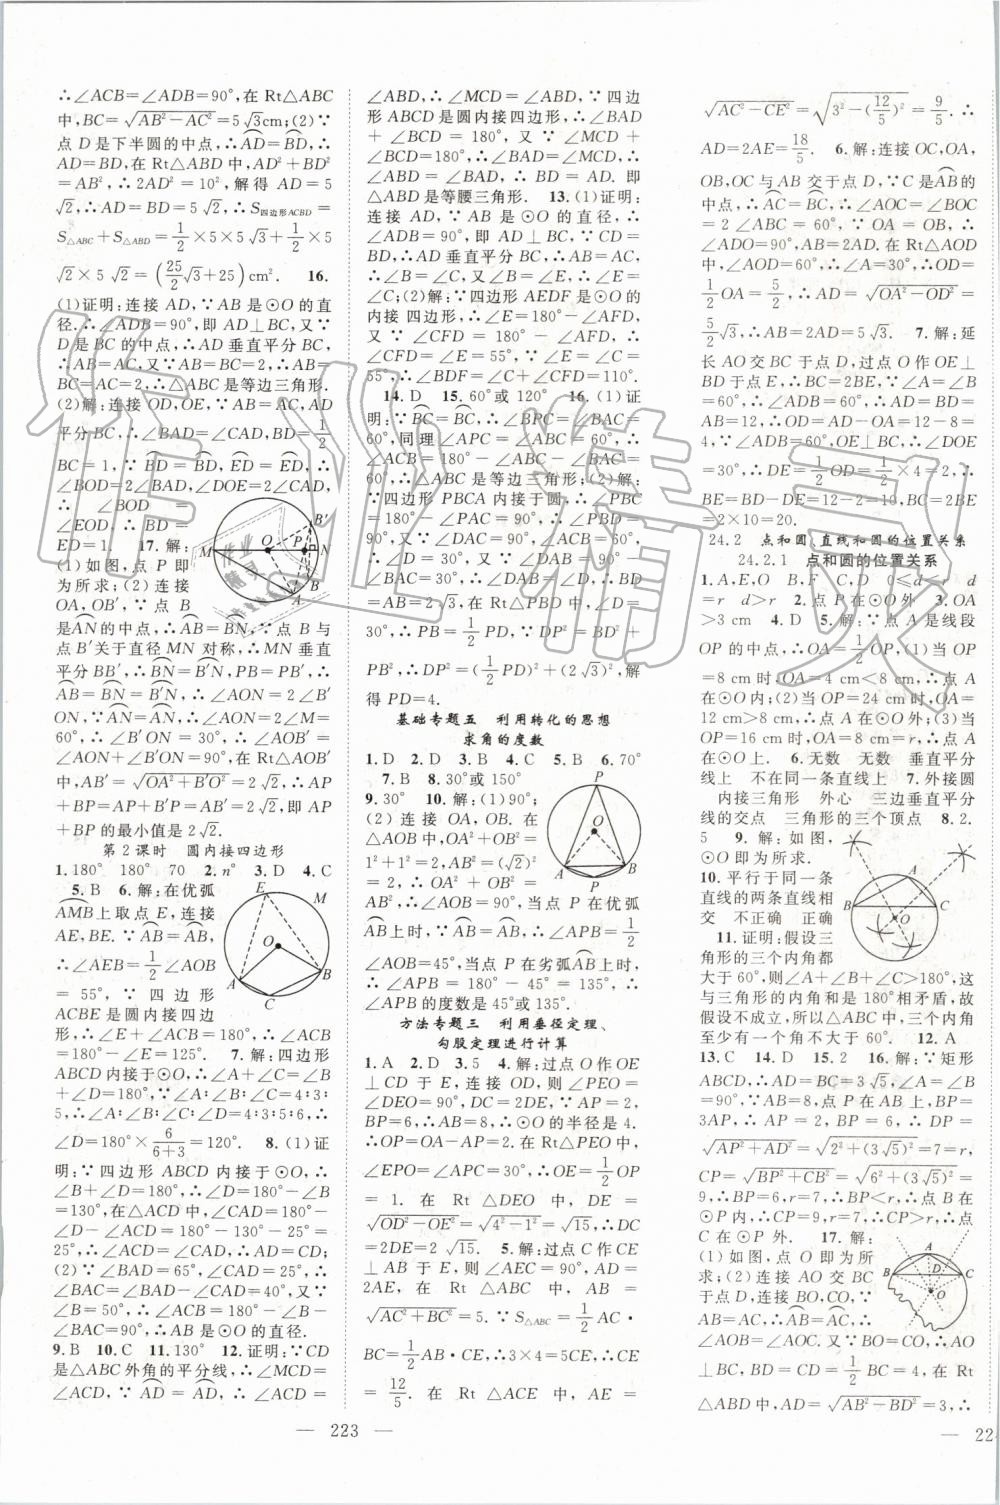 ∴∠ACB=∠ADB=90°,在 Rt△ABC
中,BC=√(AB²-AC²)=5√3cm;(2)∵
点 D 是下半圆的中点,∴AD=BD,∴
AD=BD,在 Rt△ABD 中,AD²+BD²
=AB²,∴2AD²=10²,解得 AD=5
√2,∴AD=BD=5√2,∴S四边形ACBD=
S△ABC+S△ABD=1/2×5×5√3+1/2×5
√2×5√2=(25/2√3+25)cm². 16.
(1)证明:连接 AD,∵AB 是⊙O 的直
径.∴∠ADB=90°,即 AD⊥BC,又∵
D 是 BC 的中点,∴AD 垂直平分 BC,
∴AB=AC,又∵AB=BC=2,∴AB=
BC=AC=2,∴△ABC 是等边三角形.
(2)解:连接 OD,OE,∵AB=AC,AD
平分 BC,∴∠BAD=∠CAD,BD=1/2
BC=1,∵BD=BD,ED=ED,∴
∠BOD=2∠BAD,∠DOE=2∠CAD,
∴∠BOD=
∠EOD,∴BD=
ED=1. 17.解:
(1)如图,点 P
即为所求;(2)连接
OA,OB′,∵点 B
是AN的中点,∴AB=BN,∵点 B 与
点 B′关于直径 MN 对称,∴MN 垂直
平分 BB′,∴BN=B′N,PB=PB′,∴
AB=BN=B′N,∵∠AMN=30°,
∵AN=AN,∴∠AON=2∠M=
60°,∴∠B′ON=30°,∴∠AOB′=
∠AON+∠B′ON=90°,∴在 Rt△AOB′
中,AB′=√(OA²+B′O²)=2√2,∴AP
+BP=AP+B′P=AB′=2√2,即 AP
+BP 的最小值是 2√2.
第 2 课时 圆内接四边形
1.180° 180° 70 2.n° 3.D 4.C
5.B 6.解:在优弧
AMB上取点 E,连接
AE,BE.∵AB=AB,
∴∠AEB=1/2∠AOB
=55°,∵四边形
ACBE 是圆内接四边
形,∴∠E+∠ACB=180°,∴∠ACB=
180°-∠E=125°. 7.解:四边形
ABCD 内接于⊙O,∴∠A+∠C=∠B
+∠D=180°,∵∠A∶∠B∶∠C=4∶3∶
5,∴∠A∶∠B∶∠C∶∠D=4∶3∶5∶6,
∴∠D=180°×6/(6+3)=120°. 8.(1)证
明:∵四边形 ABCD 内接于⊙O,∴
∠B+∠D=180°,∴∠D=180°-∠B
=130°,在△ACD 中,∠CAD=180°-
∠D-∠ACD=180°-130°-25°=
25°,∴∠ACD=∠CAD,∴AD=CD;
(2)∵∠BAD=65°,∠CAD=25°,∴
∠BAC=∠BAD-∠CAD=40°,又∵
∠B=50°,∴∠ACB=180°-∠B-
∠BAC=90°,∴AB 是⊙O 的直径.
9.B 10.C 11.130° 12.证明:∵CD
是△ABC 外角的平分线,∴∠MCD=
∠ACD,∵AD=AD,∴∠ACD=
∠ABD,∴∠MCD=∠ABD,∵四边
形 ABCD 是圆内接四边形,∴∠BAD
+∠BCD=180°,又∵∠MCD+
∠BCD=180°,∴∠MCD=∠BAD,
∴∠ABD=∠BAD,∴BD=AD.即
△ABD 是等腰三角形. 13.(1)证明:
连接 AD,∵AB 是⊙O 的直径,∴
∠ADB=90°,即 AD⊥BC,∵CD=
BD,∴AD 垂直平分 BC,∴AB=AC,
∴∠B=∠C,又∵∠B=∠E,∴∠E=
∠C;(2)解:∵四边形 AEDF 是⊙O 的
内接四边形,∴∠AFD=180°-∠E,
又∵∠CFD=180°-∠AFD,∴
∠CFD=∠E=55°,∵∠E=∠C=
55°,∴∠BDF=∠C+∠CFD=110°.
14.D 15.60°或 120° 16.(1)证
明:∵BC=BC,∴∠BPC=∠BAC=
60°,同理∠APC=∠ABC=60°,∴
∠APC=∠BPC=∠ABC=∠BAC=
60°,∴△ABC 是等边三角形;(2)解:
∵四边形 PBCA 内接于圆,∴∠PBC
=180°-∠PAC=90°,∵AC=
2√3,△ABC 是等边三角形,∴BC=AC=
∠BAC=60°,∴∠D=90°-
∠BAC=30°,在 Rt△PBD 中,∠D=
30°,∴PB=1/2PD,∵DP²=BD²+
PB²,∴DP²=(1/2PD)²+(2√3)²,解
得 PD=4.
基础专题五 利用转化的思想
求角的度数
1.D 2.D 3.C 4.22.5° 5.B 6.70°
7.B 8.30°或 150°
9.30° 10.解:(1)90°;
(2)连接 OA,OB.在
△AOB 中,OA²+OB²=
1²+1²=2=(√2)²=
AB²,∴△AOB 为直角三
角形,∴∠AOB=90°,当点 P 在优弧
AB上时,∴∠APB=1/2
∠AOB=45°,当点 P 在劣弧AB上时,
∴∠APB=180°-45°=135°,∴
∠APB 的度数是 45°或 135°.
方法专题三 利用垂径定理、
勾股定理进行计算
1.A 2.D 3.5 4.解:过点 O 作 OE
⊥CD 于 E,连接 OD,则∠PEO=
∠DEO=90°,DC=2DE,∵AP=2,
BP=6,∴AB=8,∴⊙O 的半径是 4.
∴OP=OA-AP=2.在 Rt△PEO 中,
∠EPO=∠APC=30°,∴OE=1/2OP
=1.在 Rt△DEO 中,DE=
√(OD²-OE²)=√(4²-1²)=√15,∴DC=
2DE=2√15. 5.解:过点 C 作 CE
⊥AB 于 E,则∠AEC=90°,AD=
2AE,在 Rt△ABC 中,AB=
√(AC²+BC²)=5.∵S△ABC=1/2AC·
BC=1/2AB·CE,∴3×4=5CE,∴CE
=12/5.在 Rt△ACE 中,AE=
√(AC²-CE²)=√(3²-(12/5)²)=9/5.∴
AD=2AE=18/5. 6.解:连接 OC,OA,
OB,OC 与 AB 交于点 D,∵C 是AB的
中点,∴AC=BC,∴∠AOC=∠BOC
=2∠ABC=60°,∴OC⊥AB,∴
∠ADO=90°,AB=2AD.在 Rt△AOD
中,∠AOD=60°,∴∠A=30°,∴OD=
1/2OA=5/2,∴AD=√(OA²-OD²)=
5/2√3,∴AB=2AD=5√3. 7.解:延
长 AO 交 BC 于点 D,过点 O 作 OE⊥
BC 于 E,则 BC=2BE,∵∠A=∠B
=60°,∴△DAB 是等边三角形,∴AD=BD=
AB=12,∴OD=AD-OA=12-8=
4,∵∠ADB=60°,OE⊥BC,∴∠DOE
=30°,∴DE=1/2OD=1/2×4=2,∴
BE=BD-DE=12-2=10,∴BC=2BE
=2×10=20.
24.2 点和圆、直线和圆的位置关系
24.2.1 点和圆的位置关系
1.A,E B,F C,D 0≤d<r d
=r d>r 2.点 P 在⊙O 外 3.OA
>3 cm 4.D 5.解:∵点 A 是线段
OP 的中点,∴(1)当 OP
=8 cm 时,OA=4 cm<8 cm,∴点 A
在⊙O 内;(2)当 OP=24 cm 时,OA=
12 cm>8 cm,∴点 A 在⊙O 外;(3)当
OP=16 cm 时,OA=8 cm=r,∴点 A
在⊙O 上. 6.无数 无数 垂直平分
线上 不在同一条直线上 7.外接圆
内接三角形 外心 三边垂直平分
线的交点 三角形的三个顶点 8.2.
5 9.解:如图,
⊙O 即为所求.
10.平行于同一条
直线的两条直线相
交 不正确 正确
11.证明:假设三
角形的三个内角都
大于 60°,则∠A+∠B+∠C>180°,这
与三角形的内角和是 180°相矛盾,故
假设不成立,所以△ABC 中,三个内角
至少有一个角不大于 60°. 12.A
13.C 14.D 15.2 16.解:∵矩形
ABCD 中,∴AD=BC=3√5,∠A=∠B
=90°,∵AB=8,点 P 在 AB 上,BP=
3AP,∴AP=2,BP=6,∴DP=
√(AP²+AD²)=√(2²+(3√5)²)=7=r,
CP=√(BP²+CB²)=√(6²+(3√5)²)=
9,∴BP=6,r=7,∴BP<r,∴点 B 在
⊙P 内,∵CP=9,r=7,∴CP>r,∴点
C 在⊙P 外. 17.解:
(1)如图,点 O 即为所
求;(2)连接 AO 交 BC
于点 D,连接 BO,CO,∵
AB=AC,∴AB=AC,∴
∠AOB=∠AOC.又∵BO=CO,∴AO
⊥BC,BD=CD=1/2BC=4,在
Rt△ABD 中,AD=√(AB²-BD²)=3,∴
— 223 —
— 22